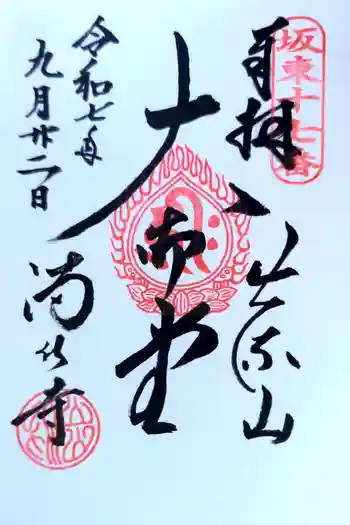 坂東十七番
奉拝
出流山
大御堂
令和七年
九月廿二日
満願寺